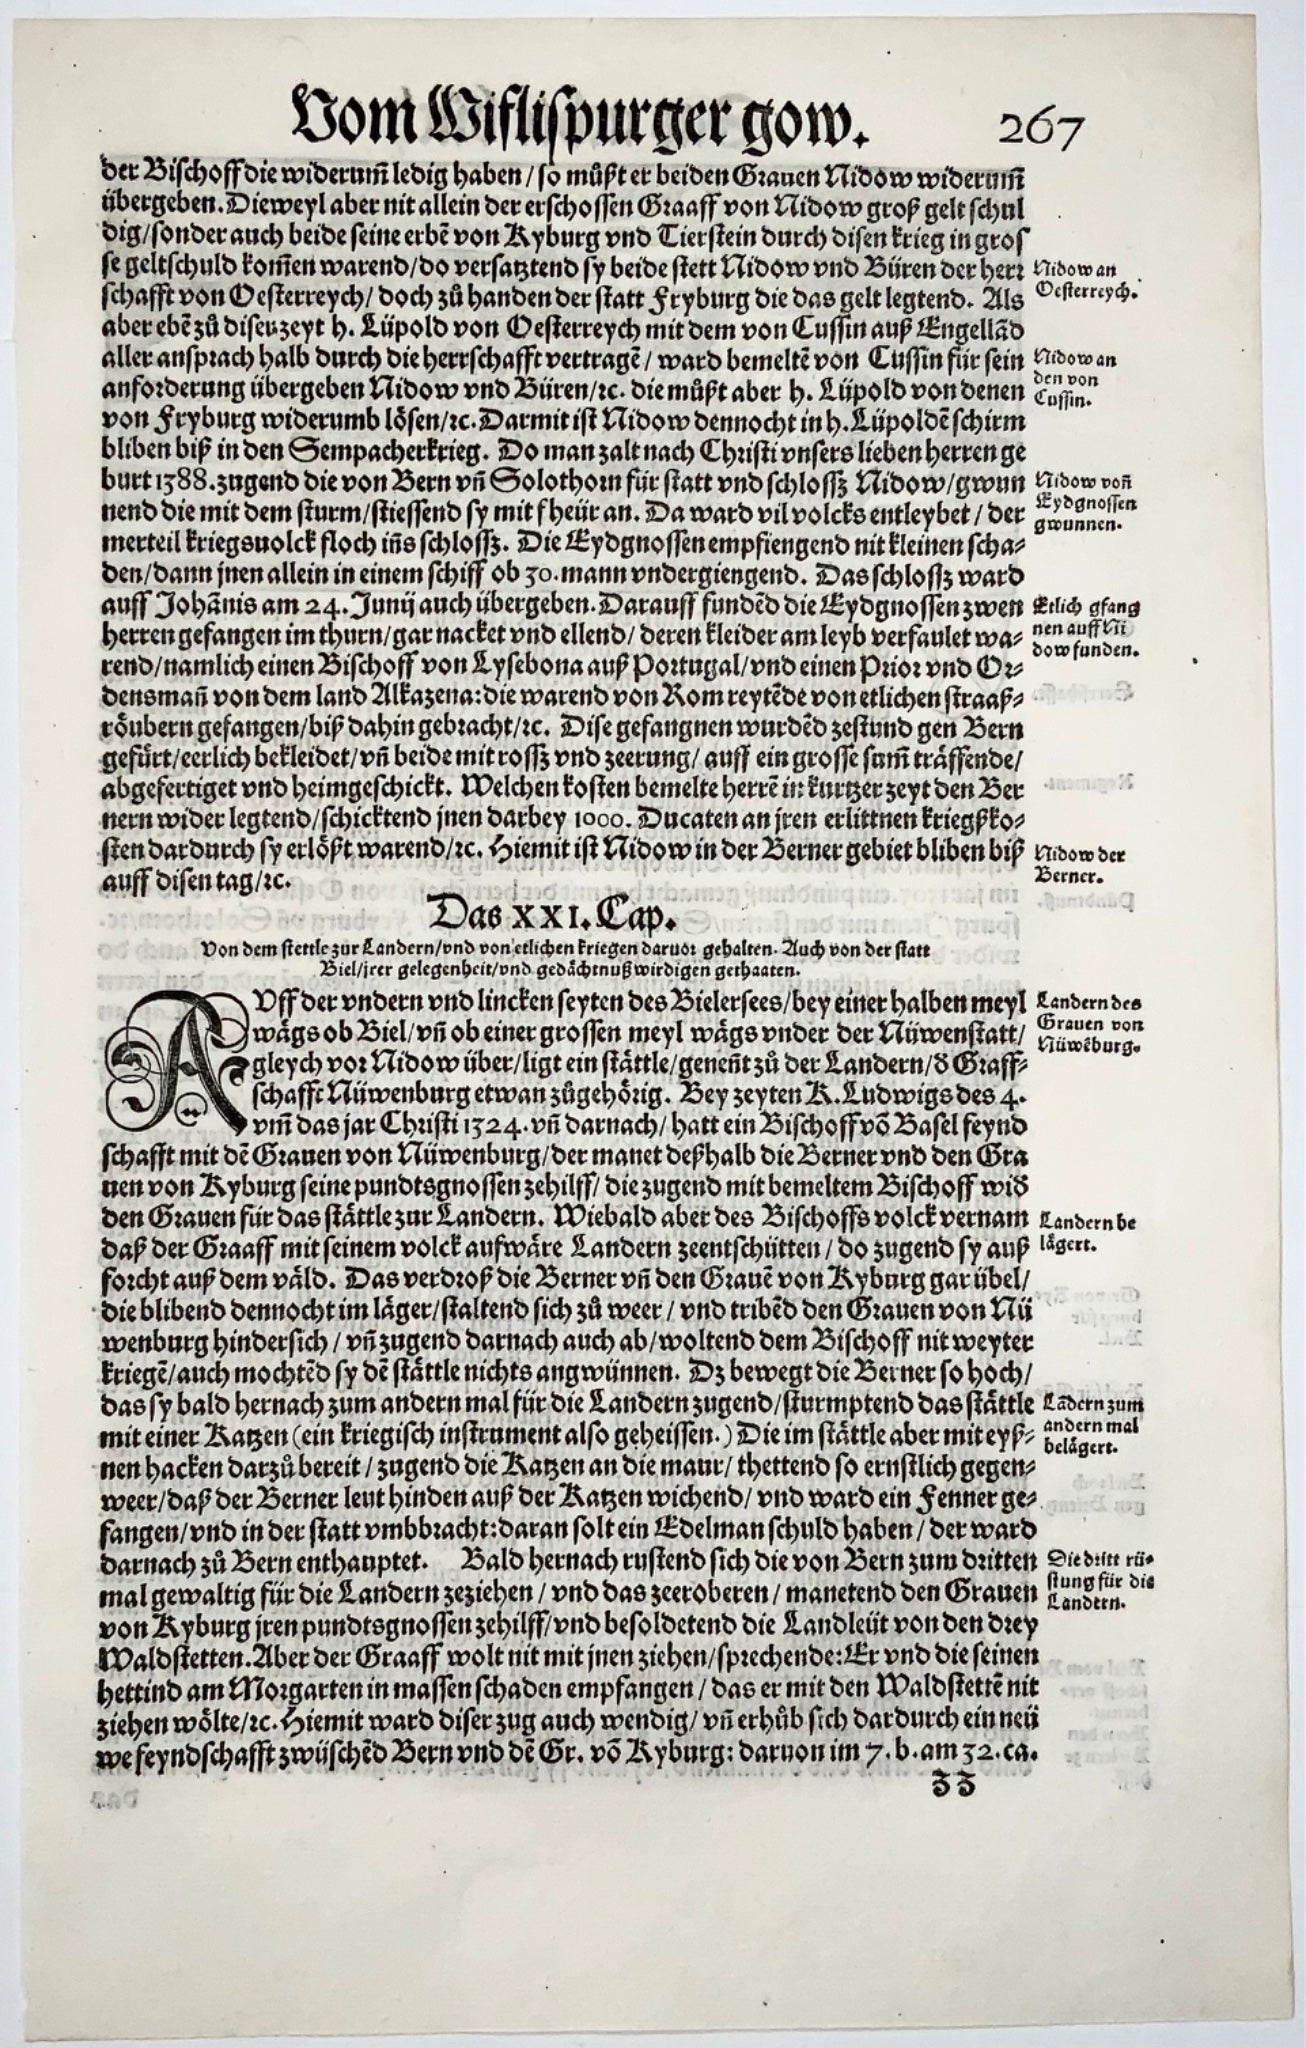 Vom Wiflispurger gow. 267
der Bischoff die widerum̃ ledig haben / so můßt er beiden Grauen Nidow widerum̃
übergeben. Dieweyl aber nit allein der erschossen Graaff von Nidow groß gelt schul
dig/sonder auch beide seine erbẽ von Kyburg vnd Tierstein durch disen krieg in gros
se geltschuld kom̃en warend/do versatztend sy beide stett Nidow vnd Büren der herr
schafft von Oesterreych/ doch zů handen der statt Fryburg die das gelt legtend. Als
Nidow an
Oesterreych.
aber ebẽ zů diser zeyt h. Lüpold von Oesterreych mit dem von Cussin auß Engellãd
aller ansprach halb durch die herrschafft vertragẽ/ ward bemeltẽ von Cussin für sein
anforderung übergeben Nidow vnd Büren/ꝛc. die můßt aber h. Lüpold von denen
Nidow an
den von
Cussin.
von Fryburg widerumb lösen/ꝛc. Darmit ist Nidow dennocht in h. Lüpoldẽ schirm
bliben biß in den Sempacherkrieg. Do man zalt nach Christi vnsers lieben herren ge
burt 1388. zugend die von Bern vñ Solothorn für statt vnd schlossz Nidow/gwun
nend die mit dem sturm/stiessend sy mit fheür an. Da ward vil volcks entleybet / der
Nidow voñ
Eydgnossen
gwunnen.
merteil kriegsuolck floch iñs schlossz. Die Eydgnossen empfiengend nit kleinen scha-
den/dann jnen allein in einem schiff ob 30. mann vndergiengend. Das schlossz ward
auff Johãnis am 24. Junij auch übergeben. Darauff fundẽd die Eydgnossen zwen
herren gefangen im thurn/gar nacket vnd ellend/ deren kleider am leyb verfaulet wa-
Etlich gfang
nen auff Ni
dow funden.
rend/namlich einen Bischoff von Lysebona auß Portugal/vnd einen Prior vnd Or-
densmañ von dem land Alkazena: die warend von Rom reytẽde von etlichen straaß-
röubern gefangen/biß dahin gebracht/ꝛc. Dise gefangnen wurdẽd zestund gen Bern
gefürt/eerlich bekleidet/vñ beide mit rossz vnd zeerung/ auff ein grosse sum̃ träffende/
abgefertiget vnd heimgeschickt. Welchen kosten bemelte herrẽ in kurtzer zeyt den Ber
nern wider legtend/schicktend jnen darbey 1000. Ducaten an jren erlittnen kriegßko-
sten dardurch sy erlößt warend/ꝛc. Hiemit ist Nidow in der Berner gebiet bliben biß
auff disen tag/ꝛc.
Nidow der
Berner.
Das XXI. Cap.
Von dem stettle zur Landern/vnd von etlichen kriegen daruor gehalten. Auch von der statt
Biel/jrer gelegenheit/vnd gedächtnußwirdigen gethaaten.
AVff der vndern vnd lincken seyten des Bielersees/bey einer halben meyl
wägs ob Biel/vñ ob einer grossen meyl wägs vnder der Nüwenstatt/
gleych vor Nidow über/ligt ein stättle/geneñt zů der Landern/ð Graff-
Landern des
Grauen von
Nüwẽburg.
schafft Nüwenburg etwan zůgehörig. Bey zeyten K. Ludwigs des 4.
vm̃ das jar Christi 1324. vñ darnach/ hatt ein Bischoff võ Basel feynd
schafft mit dẽ Grauen von Nüwenburg/der manet deßhalb die Berner vnd den Gra
uen von Kyburg seine pundtsgnossen zehilff/ die zugend mit bemeltem Bischoff wið
den Grauen für das stättle zur Landern. Wiebald aber des Bischoffs volck vernam
daß der Graaff mit seinem volck aufwäre Landern zeentschütten / do zugend sy auß
Landern be
lägert.
forcht auß dem väld. Das verdroß die Berner vñ den Grauẽ von Kyburg gar übel/
die blibend dennocht im läger/staltend sich zů weer / vnd tribẽd den Grauen von Nü
wenburg hindersich/ vñ zugend darnach auch ab/woltend dem Bischoff nit weyter
kriegẽ/auch mochtẽd sy dẽ stättle nichts angwünnen. Dz bewegt die Berner so hoch/
das sy bald hernach zum andern mal für die Landern zugend/sturmptend das stättle
mit einer Katzen (ein kriegisch instrument also geheissen.) Die im stättle aber mit eyß-
nen hacken darzů bereit / zugend die Katzen an die maur/ thettend so ernstlich gegen-
Lãdern zum
andern mal
belägert.
weer/daß der Berner leut hinden auß der Katzen wichend/ vnd ward ein Fenner ge-
fangen/vnd in der statt vmbbracht: daran solt ein Edelman schuld haben / der ward
darnach zů Bern enthauptet. Bald hernach rustend sich die von Bern zum dritten
mal gewaltig für die Landern zeziehen / vnd das zeeroberen / manetend den Grauen
Die dritt rü-
stung für die
Landern.
von Kyburg jren pundtsgnossen zehilff/vnd besoldetend die Landleüt von den drey
Waldstetten. Aber der Graaff wolt nit mit jnen ziehen/sprechende: Er vnd die seinen
hettind am Morgarten in massen schaden empfangen / das er mit den Waldstettẽ nit
ziehen wölte/ꝛc. Hiemit ward diser zug auch wendig/ vñ erhůb sich dardurch ein neü
we feyndschafft zwüschẽd Bern vnd dẽ Gr. võ Kyburg: daruon im 7. b. am 32. ca.
Zz